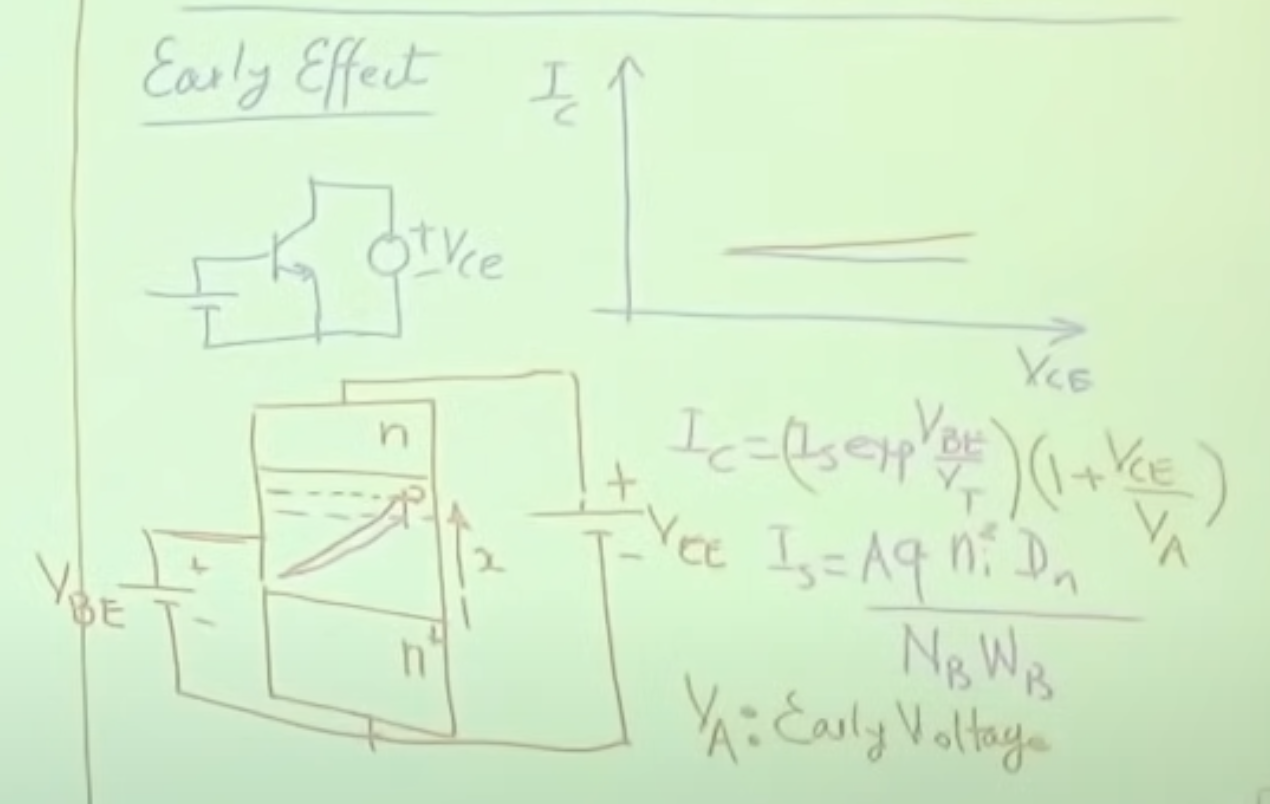 Early Effect
I_C
+
V_CE
-
V_CE
n
p
x
n⁺
V_BE
+
-
+
V_CE
-
I_C = (I_S exp V_BE/V_T)(1 + V_CE/V_A)
I_S = A q n_i² D_n / N_B W_B
V_A : Early Voltage